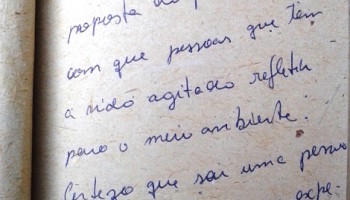 proposta
com que pessoas que têm
a vida agitada refletir
para o meio ambiente.
Certeza que sai uma pessoa
expe-